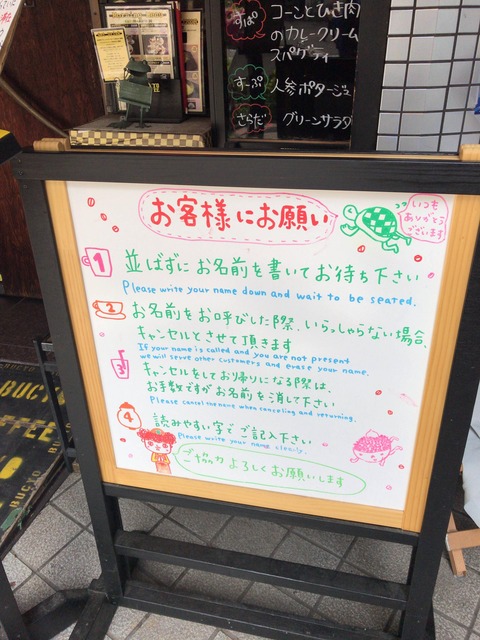 すぱ
コーンとひき肉
のカレークリーム
スパゲティ
すーぷ
人参ポタージュ
さらだ
グリーンサラダ
お客様にお願い
いつも
ありがとう
ございます
1 並ばずにお名前を書いてお待ち下さい
Please write your name down and wait to be seated.
2 お名前をお呼びした際、いらっしゃらない場合、
キャンセルとさせて頂きます
If your name is called and you are not present
we will serve other customers and erase your name.
3 キャンセルをしてお帰りになる際は、
お手数ですがお名前を消して下さい
Please cancel the name when canceling and returning.
4 読みやすい字でご記入下さい
Please write your name clearly.
ご協力よろしくお願いします